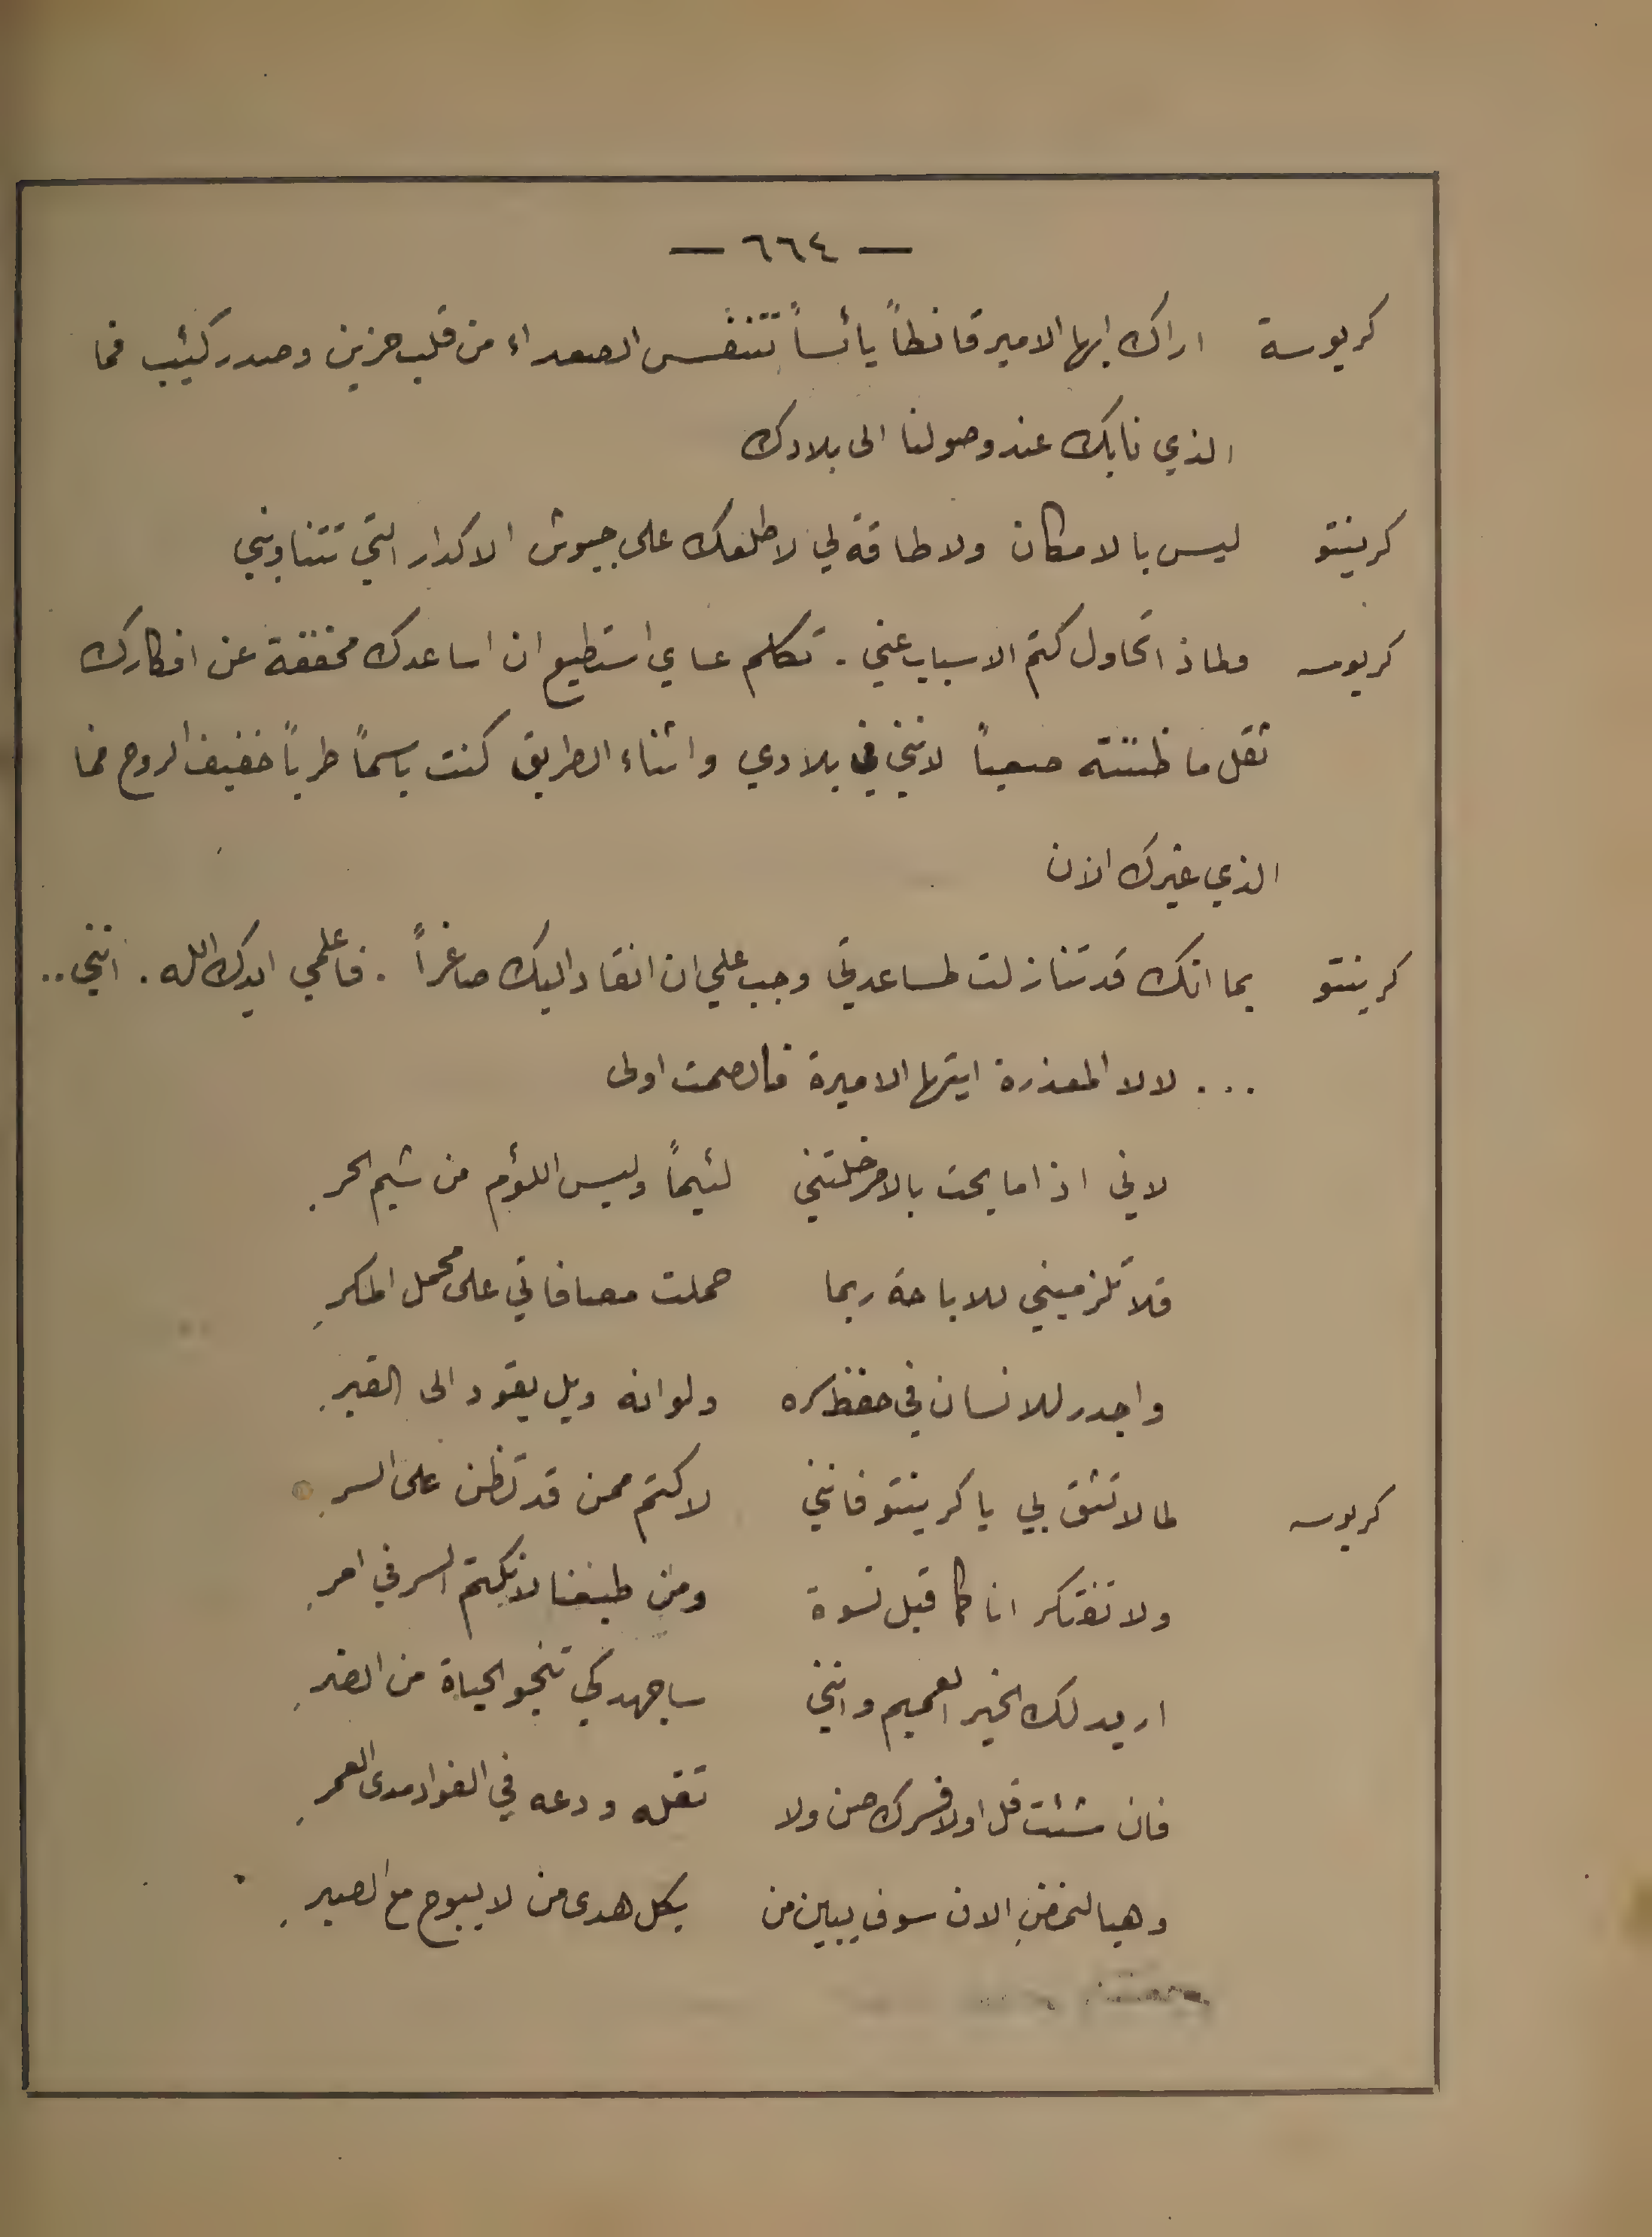 — ٦٦٤ —
كريوسة اراك ايها الامير قانطاً يائساً تتنفس الصعداء من قلب حزين وصدر كئيب فما
الذي نابك عند وصولنا الى بلادك
كرينتو ليس بالامكان ولا طاقة لي لاطلعك على جيوش الاكدار التي تتناوبني
كريوسه ولماذا تحاول كتم الاسباب عني . تكلم عساي استطيع ان اساعدك مخففة عن افكارك
ثقل ما ظننته صعباً لانني في بلادي واثناء الطريق كنت باسماً طرباً خفيف الروح فما
الذي غيرك الان
كرينتو بما انك قد تنازلت لمساعدتي وجب علي ان انقاد اليك صاغراً . فاعلمي ايدك الله . انني ..
... لا لا المعذرة ايتها الاميرة فالصمت اولى
لاني اذا ما بحت بالامر خلتني لئيماً وليس اللؤم من شيم الحرِ
فلا تلزميني للاباحة ربما حملت مصافاتي على محمل المكرِ
واجدر للانسان في حفظ سره ولو انه ويل يقود الى القبرِ
كريوسه لما لا تثق بي يا كرينتو فانني لاكتم ممن قد تظن على السرِ
ولا تفتكر انا كما قيل نسوة ومن طبعنا لا نكتم السر في امرِ
اريد لك الخير العميم وانني ساجهد كي تنجو الحياة من الضرِ
فان شئت قل اولا فسرك صن ولا تقله ودعه في الفواد مدى العمرِ
وهيا لنمضِ الان سوف يبين من بكل هدى من لا يبوح مع الصبرِ